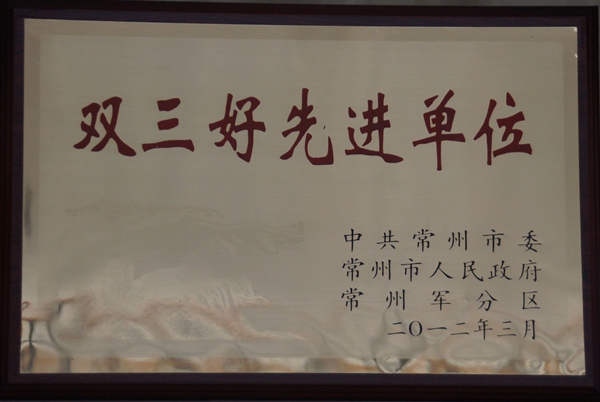 双三好先进单位
中共常州市委
常州市人民政府
常州军分区
二〇一二年三月